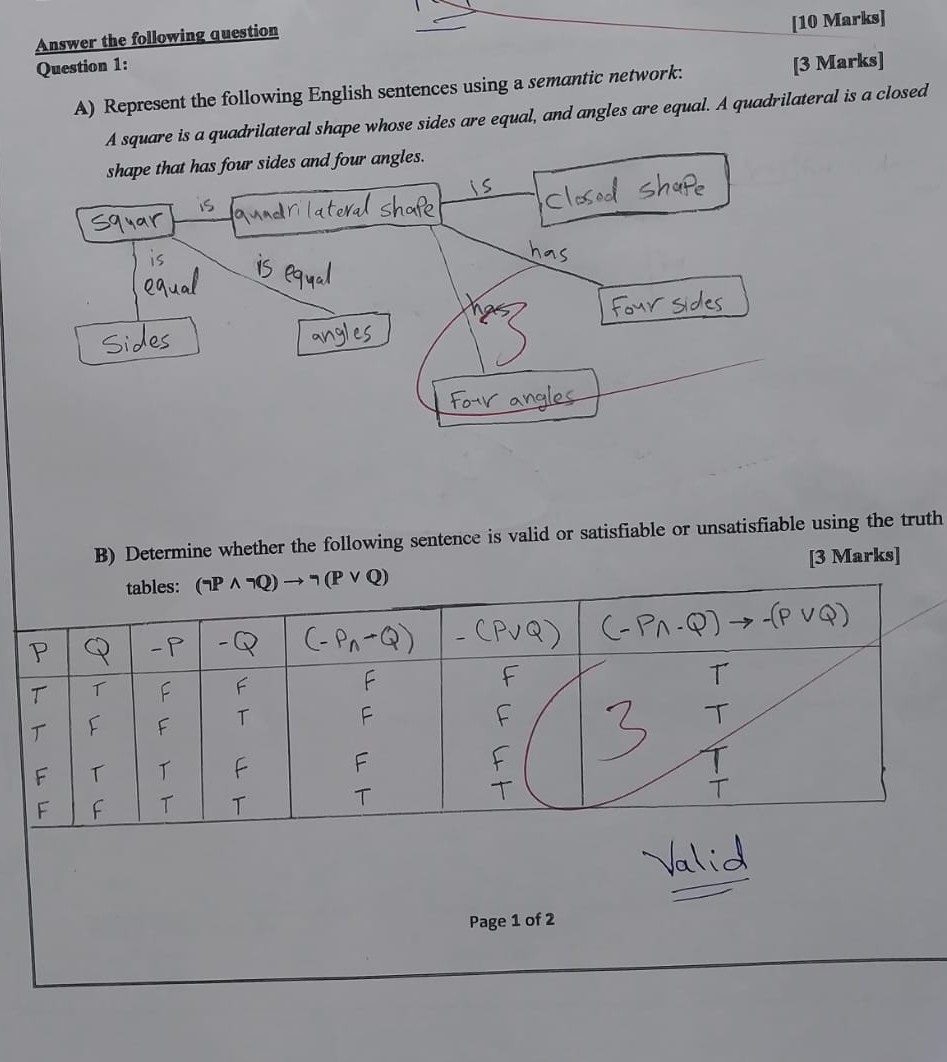 [10 Marks]
Answer the following question
Question 1:
[3 Marks]
A) Represent the following English sentences using a semantic network:
A square is a quadrilateral shape whose sides are equal, and angles are equal. A quadrilateral is a closed
shape that has four sides and four angles.
squar is quadrilateral shape is closed shape
is equal
is equal
has
has
Sides
angles
Four sides
3
Four angles
B) Determine whether the following sentence is valid or satisfiable or unsatisfiable using the truth
tables: (¬P ∧ ¬Q) → ¬ (P ∨ Q)
[3 Marks]
P Q -P -Q (-P∧-Q) -(P∨Q) (-P∧-Q) → -(P∨Q)
T T F F F F T
T F F T F F T
F T T F F F T
F F T T T T T
3
Valid
Page 1 of 2